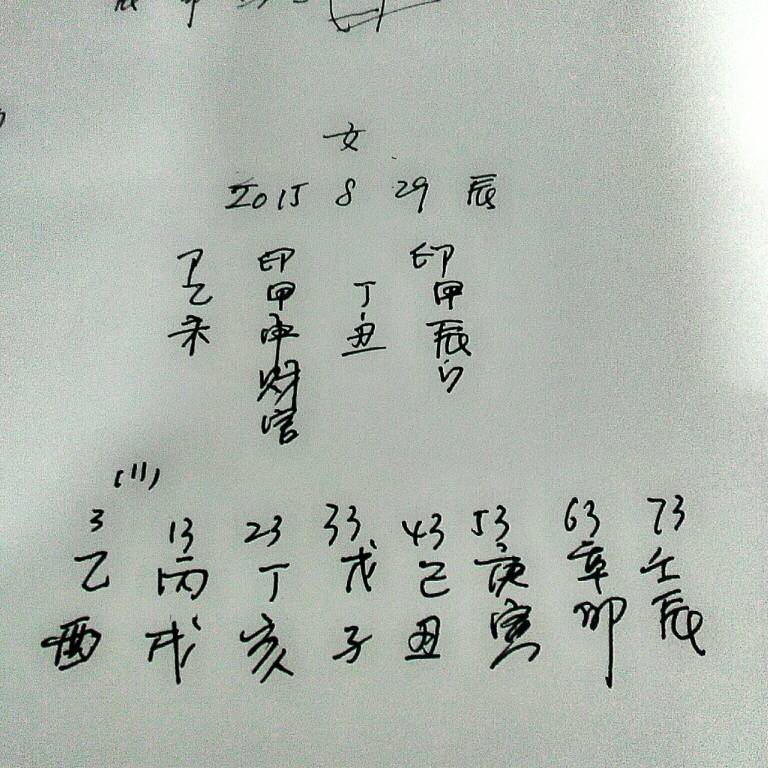 女
2015 8 29 辰
印 印
乙 甲 丁 甲
未 申 丑 辰
财
官
(11)
3 13 23 33 43 53 63 73
乙 丙 丁 戊 己 庚 辛 壬
酉 戌 亥 子 丑 寅 卯 辰